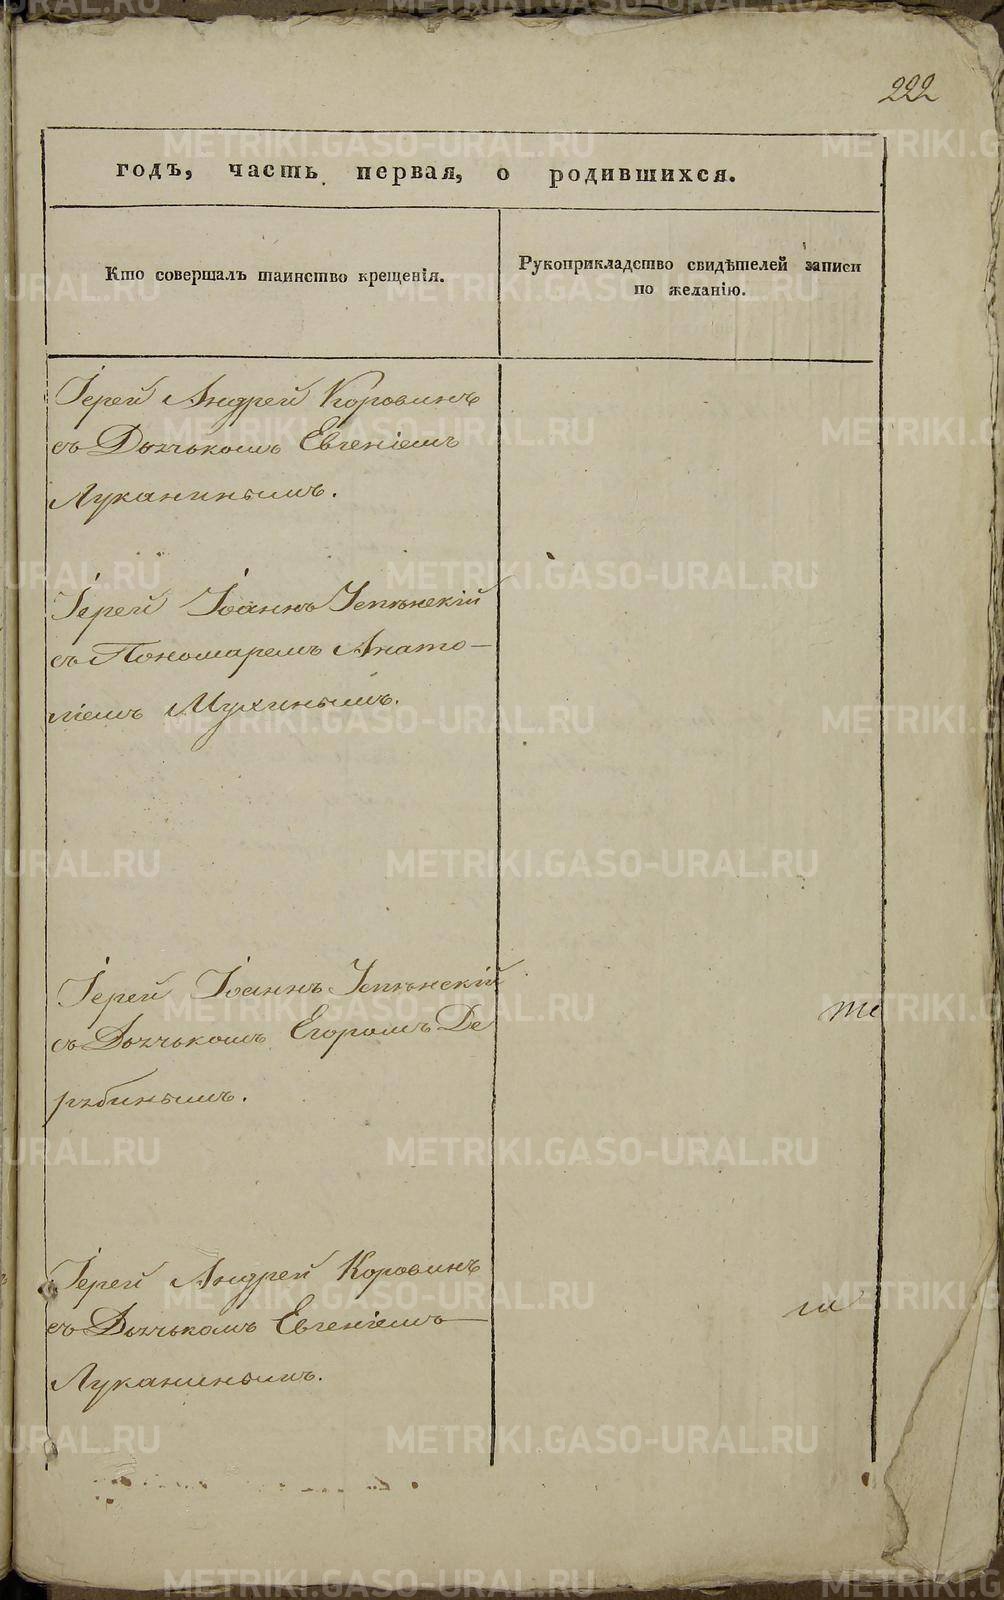 222
годъ, часть первая, о родившихся.
Кто совершалъ таинство крещенія.
Рукоприкладство свидѣтелей записи
по желанію.
Іерей Андрей Коровинъ
съ Дьячькомъ Евгеніемъ
Луканинымъ.
Іерей Іоаннъ Успѣнскій
съ Пономаремъ Анато-
ліемъ Мухинымъ.
Іерей Іоаннъ Успѣнскій
съ Дьячькомъ Егоромъ Де
рябинымъ.
Іерей Андрей Коровинъ
съ Дьячькомъ Евгеніемъ
Луканинымъ.
METRIKI.GASO-URAL.RU